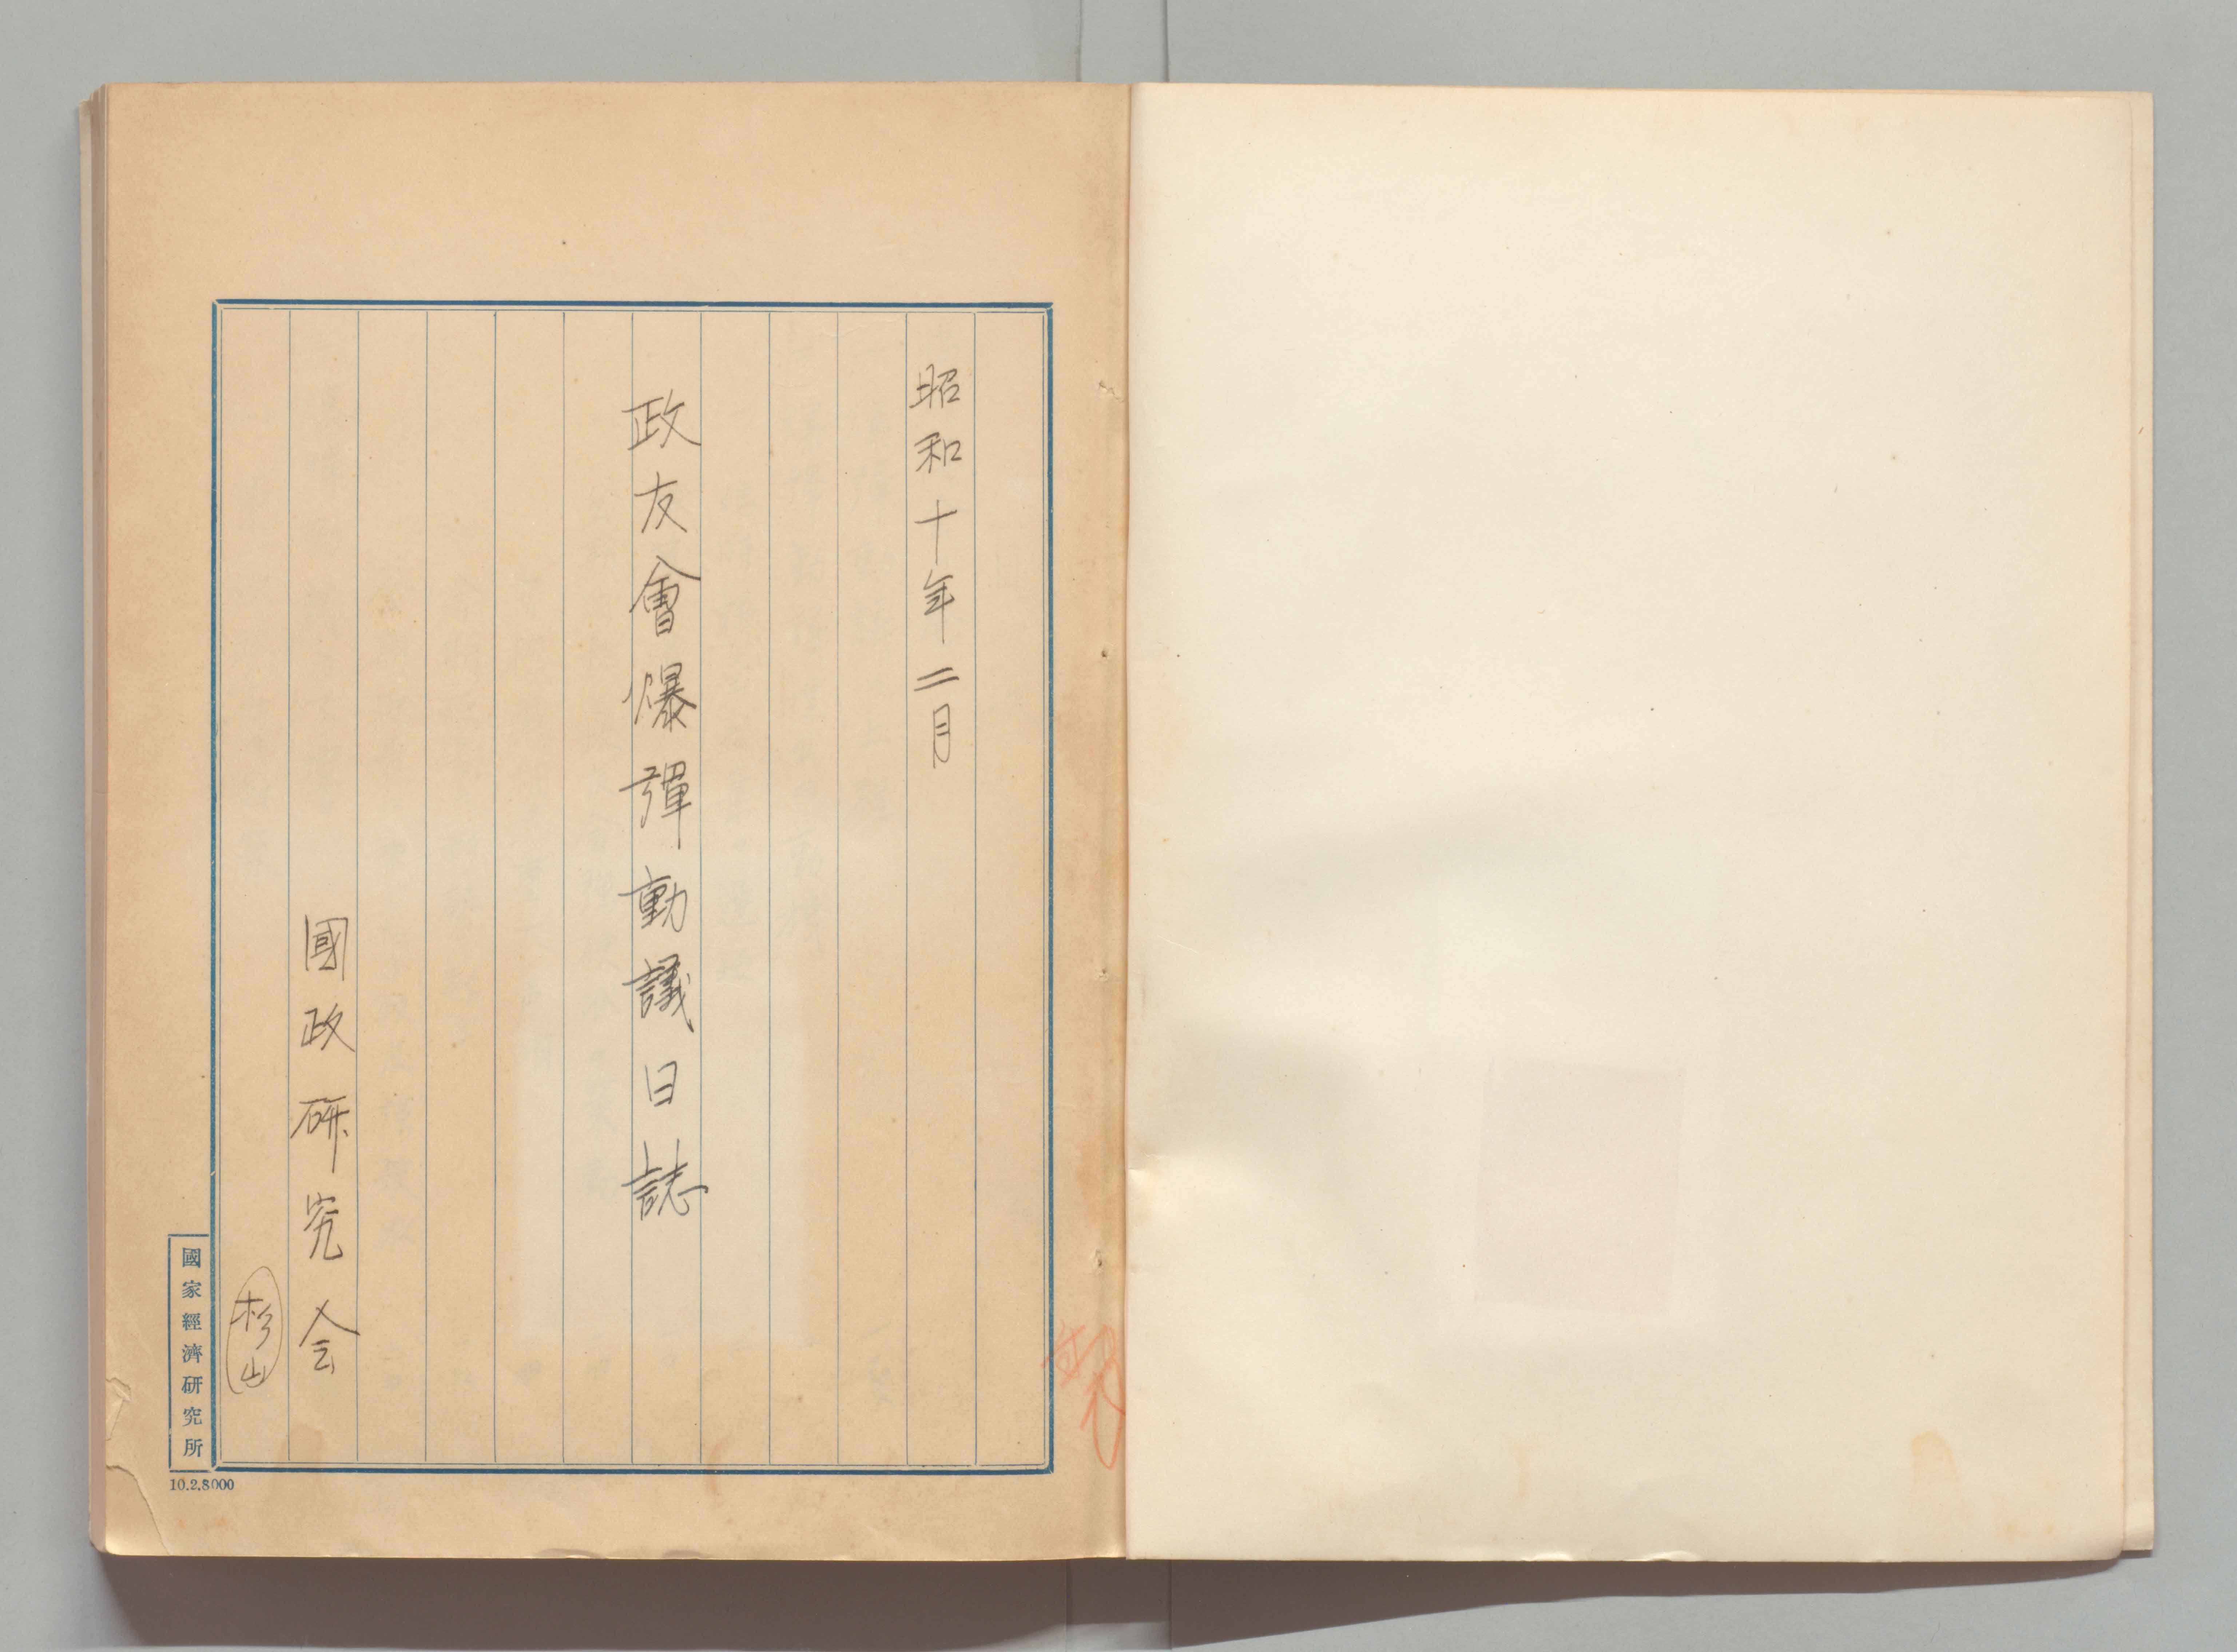 昭和十年二月
政友會爆弾動議日誌
國政研究会
杉山
國家經濟研究所
10.2.8000